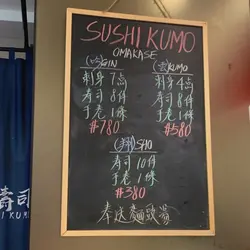 SUSHI KUMO
OMAKASE
GIN
刺身 7点
寿司 8件
手卷 1條
#780
KUMO
刺身 4点
寿司 8件
手卷 1條
#580
SHO
寿司 10件
手卷 1條
#380
奉送麵豉湯
寿司